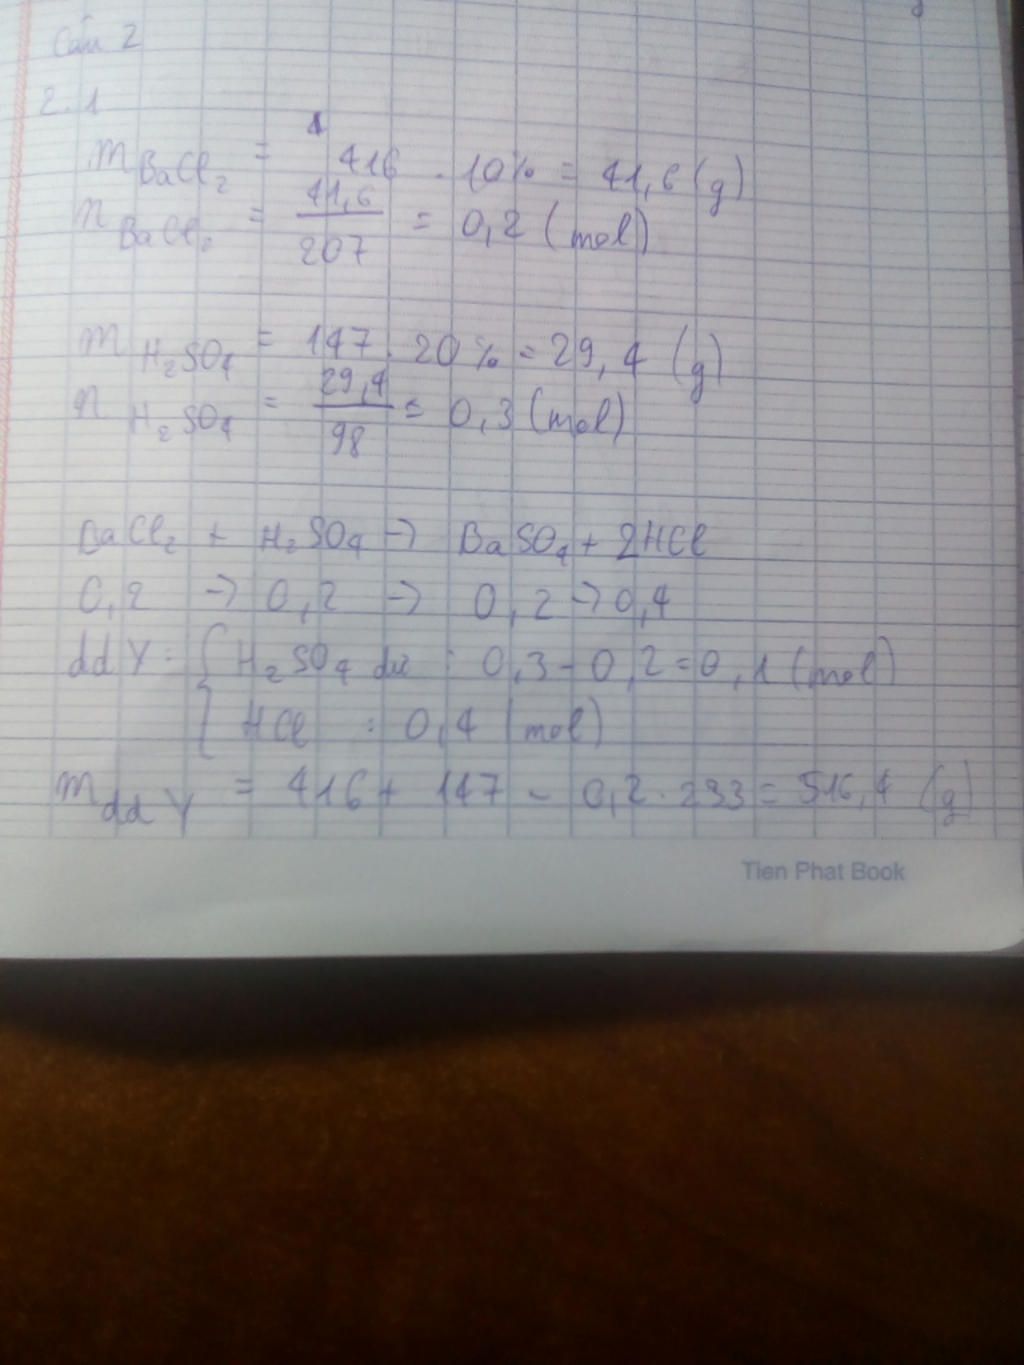 Câu 2
2.1
m BaCl₂ = 416 . 10% = 41,6 (g)
n BaCl₂ = 41,6 / 207 = 0,2 (mol)
m H₂SO₄ = 147 . 20% = 29,4 (g)
n H₂SO₄ = 29,4 / 98 = 0,3 (mol)
BaCl₂ + H₂SO₄ → BaSO₄ + 2HCl
0,2 → 0,2 → 0,2 → 0,4
dd Y : { H₂SO₄ dư : 0,3 - 0,2 = 0,1 (mol)
HCl : 0,4 (mol)
m dd Y = 416 + 147 - 0,2 . 233 = 516,4 (g)
Tien Phat Book